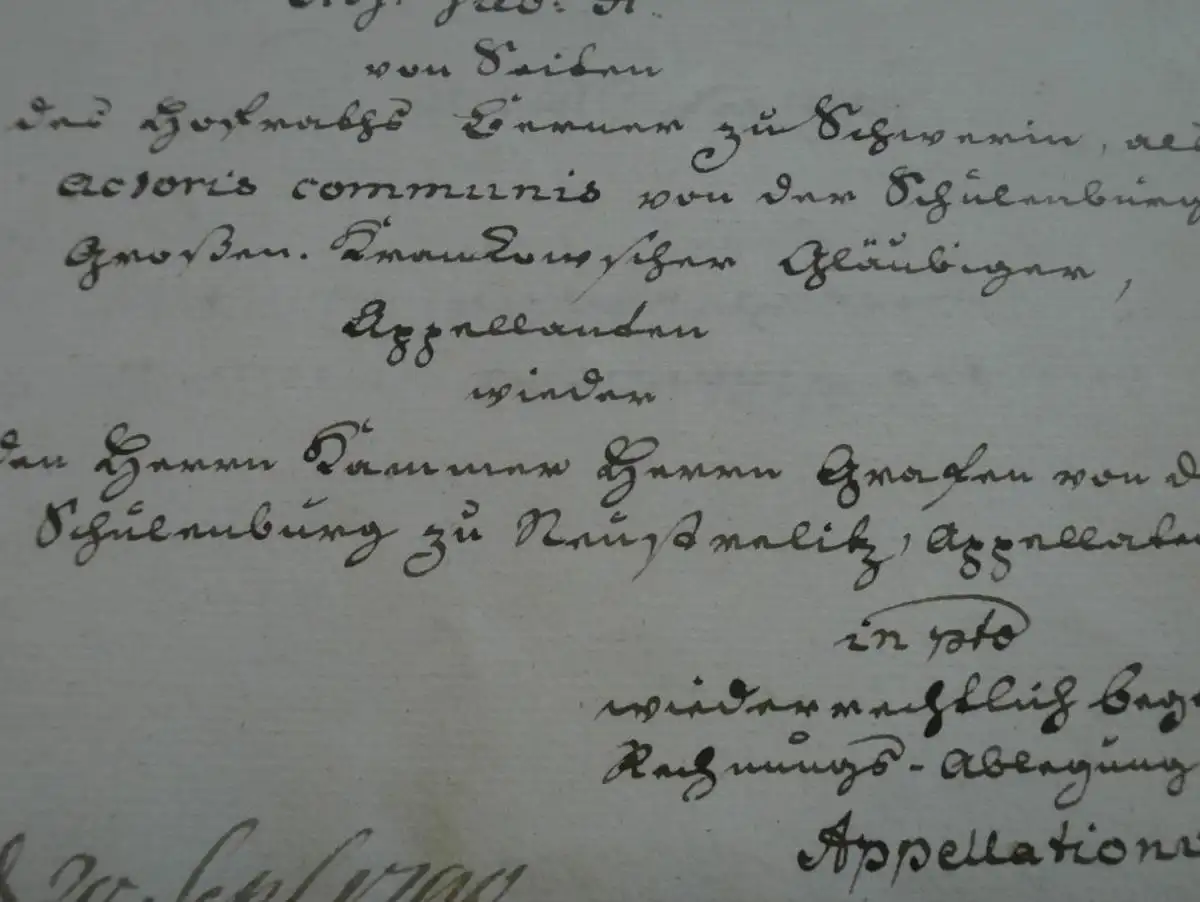 von Seiten
des Hofraths Berner zu Schwerin, als
actoris communis von der Schulenburg
Großen. Krankowscher Gläubiger,
Appellanten
wieder
den Herrn Kammer Herrn Grafen von d
Schulenburg zu Neustrelitz, Appellaten
in pto
wiederrechtlich bege
Rechnungs-Ablegung
Appellationi